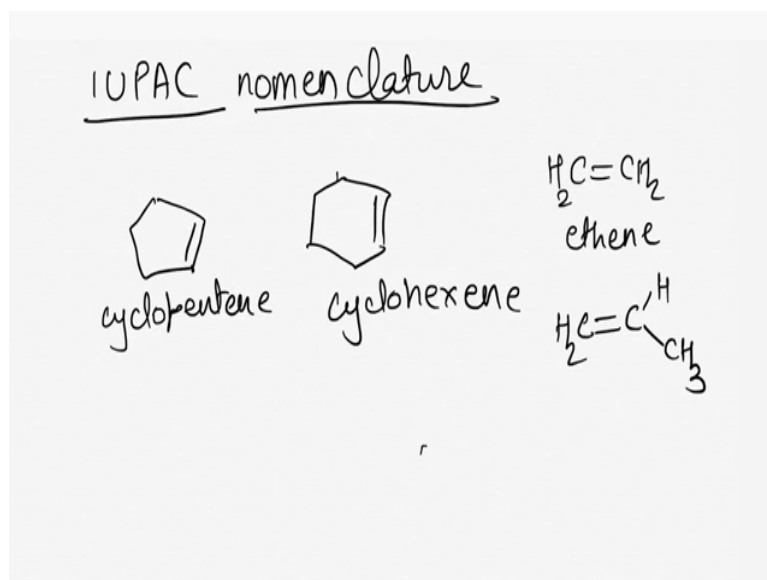 IUPAC nomenclature
cyclopentene
cyclohexene
H2C=CH2
ethene
H2C=C
H
CH3